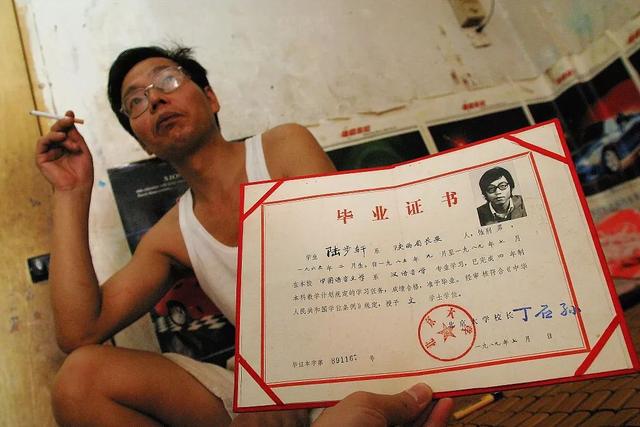 毕业证书
学生 陆步轩 系 陕西省长安 人,性别 男,
一九六五年 二 月生,自一九八五年 九 月至一九八九年 七 月
在本校 中国语言文学 系 汉语言学 专业学习,已完成 四 年制
本科教学计划规定的学习任务,成绩合格,准予毕业。经审核符合《中华
人民共和国学位条例》规定,授予 文 学士学位。
北京大学校长 丁石孙
一九八九年七月 日
毕证本字第 891167 号